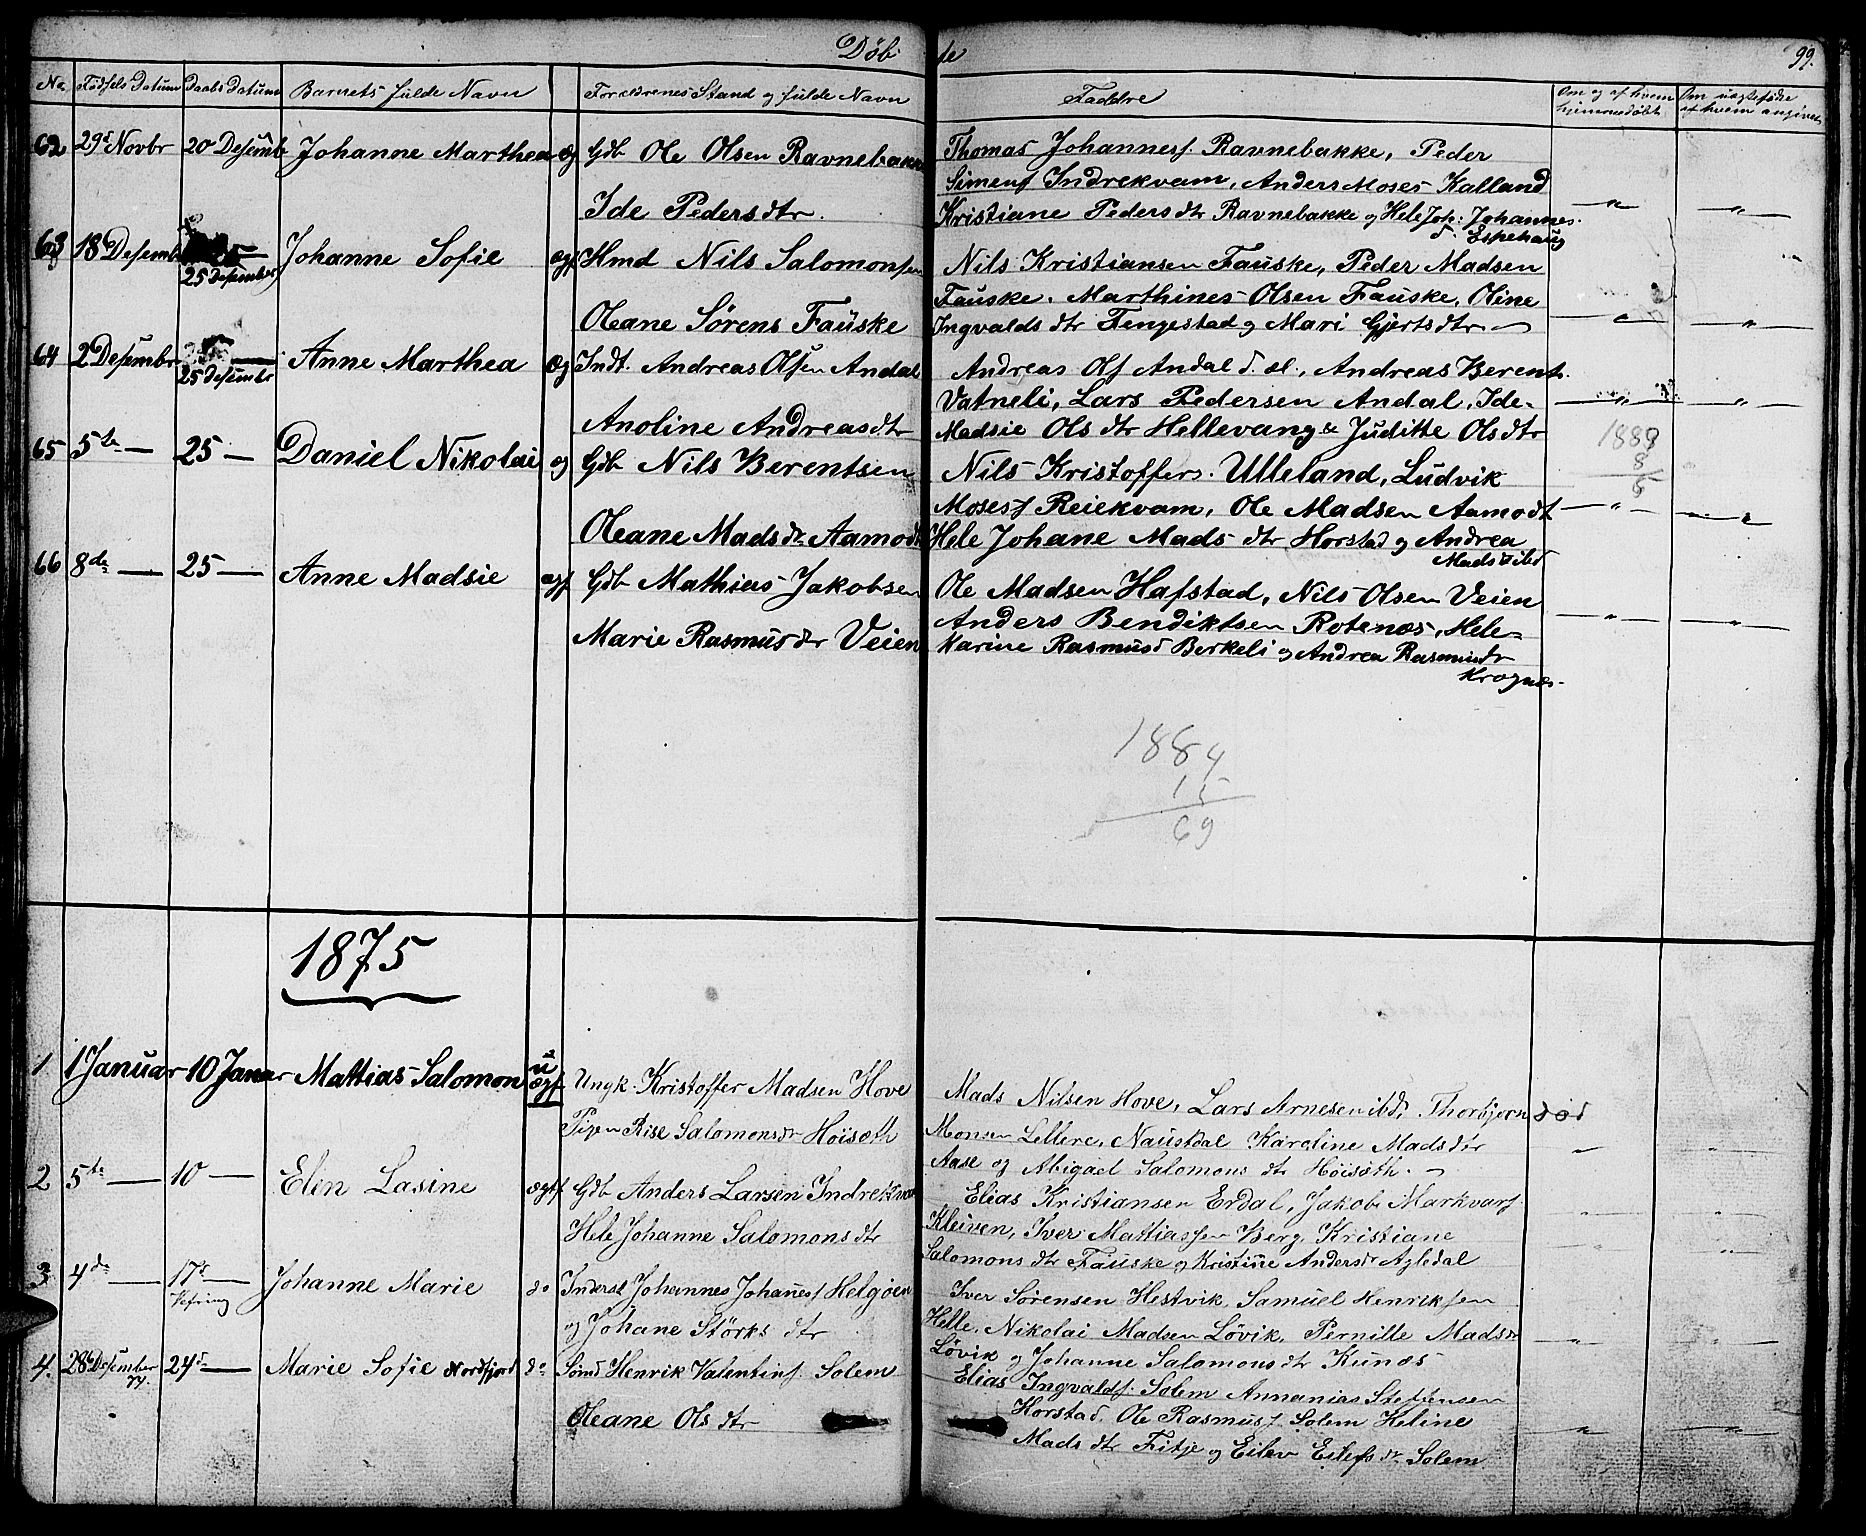 Döb
te
99.
No Fødsels Datum Daabs Datum Barnets fulde Navn Forældrenes Stand og fulde Navn
Faddre
Om og af hvem
hjemmedøbt
Om uægteføde
af hvem angivet
62 29d Novbr 20 Desemb Johanne Marthea æg Gdb Ole Olsen Ravnebakke
Ide Pedersdtr.
Thomas Johannesf. Ravnebakke, Peder
Simens Indrekvam, Anders Moses Kalland
Kristiane Pedersdtr Ravnebakke og Hele Joh: Johannes.
d. Espehaug
63 18 Desemb Johanne Sofie ægf Hmd Nils Salomonsen
25 Desember
Oleane Sørens Fauske
Nils Kristiansen Fauske, Peder Madsen
Fauske. Marthines Olsen Fauske, Oline
Ingvalds dtr Fengestad og Mari Gjertsdtr
64 2 Desembr Anne Marthea æg Indt. Andreas Olsen Andal
25 Desembr
Anoline Andreasdtr
Andreas Ols Andal d. æl., Andreas Berent.
Vatneli, Lars Pedersen Andal, Ide-
Madsie Ols dtr Hellevang & Juditte Olsdtr
65 5te — 25 — Daniel Nikolai æg Gdb Nils Berentsen
Oleane Mads dtr Aamodt
Nils Kristoffers. Ulleland, Ludvik
Mosesf Reiekvam, Ole Madsen Aamodt
Hele Johane Mads dtr Horstad og Andrea
Mads d ibd
1889
8
6
66 8de — 25 — Anne Madsie ægf Gdb Mathias Jakobsen
Marie Rasmusdtr Veien
Ole Madsen Hafstad, Nils Olsen Veien
Anders Bendiktsen Rotenæs, Hele-
Karine Rasmusd Berkeli og Andrea Rasmusdtr
Krognæs.
1884
15
69
1875
1 1 Januar 10 Januar Mattias Salomon u ægf Ungk. Kristoffer Madsen Hove
Pigen Rise Salomonsdtr Höisæth
Mads Nilsen Hove, Lars Arnesen ibd, Thorbjørn død
Monsen Lellere, Naustdal Karoline Madsdtr
Aase og Abigael Salomons dtr Höisæth.
2 5te — 10 — Elen Lasine ægtf Gdb Anders Larsen Indrekvam
Hele Johanne Salomonsdtr
Elias Kristiansen Erdal, Jakob Markvarf
Kleiven, Iver Mattiassen Berg, Kristiane
Salomons dtr Fauske og Kristine Andersdr Agledal
3 4de — 17d — Johanne Marie do Inderst Johannes Johanesf Helgöen
Vefring
og Johane Störks dtr
Iver Sörensen Hestvik, Samuel Henriksen
Helle, Nikolai Madsen Lövik, Pernille Madsdr
Lövik og Johanne Salomons dtr Kunæs
4. 28de Desember 24de — Marie Sofie Nordfjord do Smed Henrik Valentinf. Solem
74.
Oleane Ols dtr
Elias Ingvaldf. Solem Annanias Steffensen
Horstad, Ole Rasmusf. Solem Heline
Mads dtr Fitje og Eilev Eilefs dr Solem